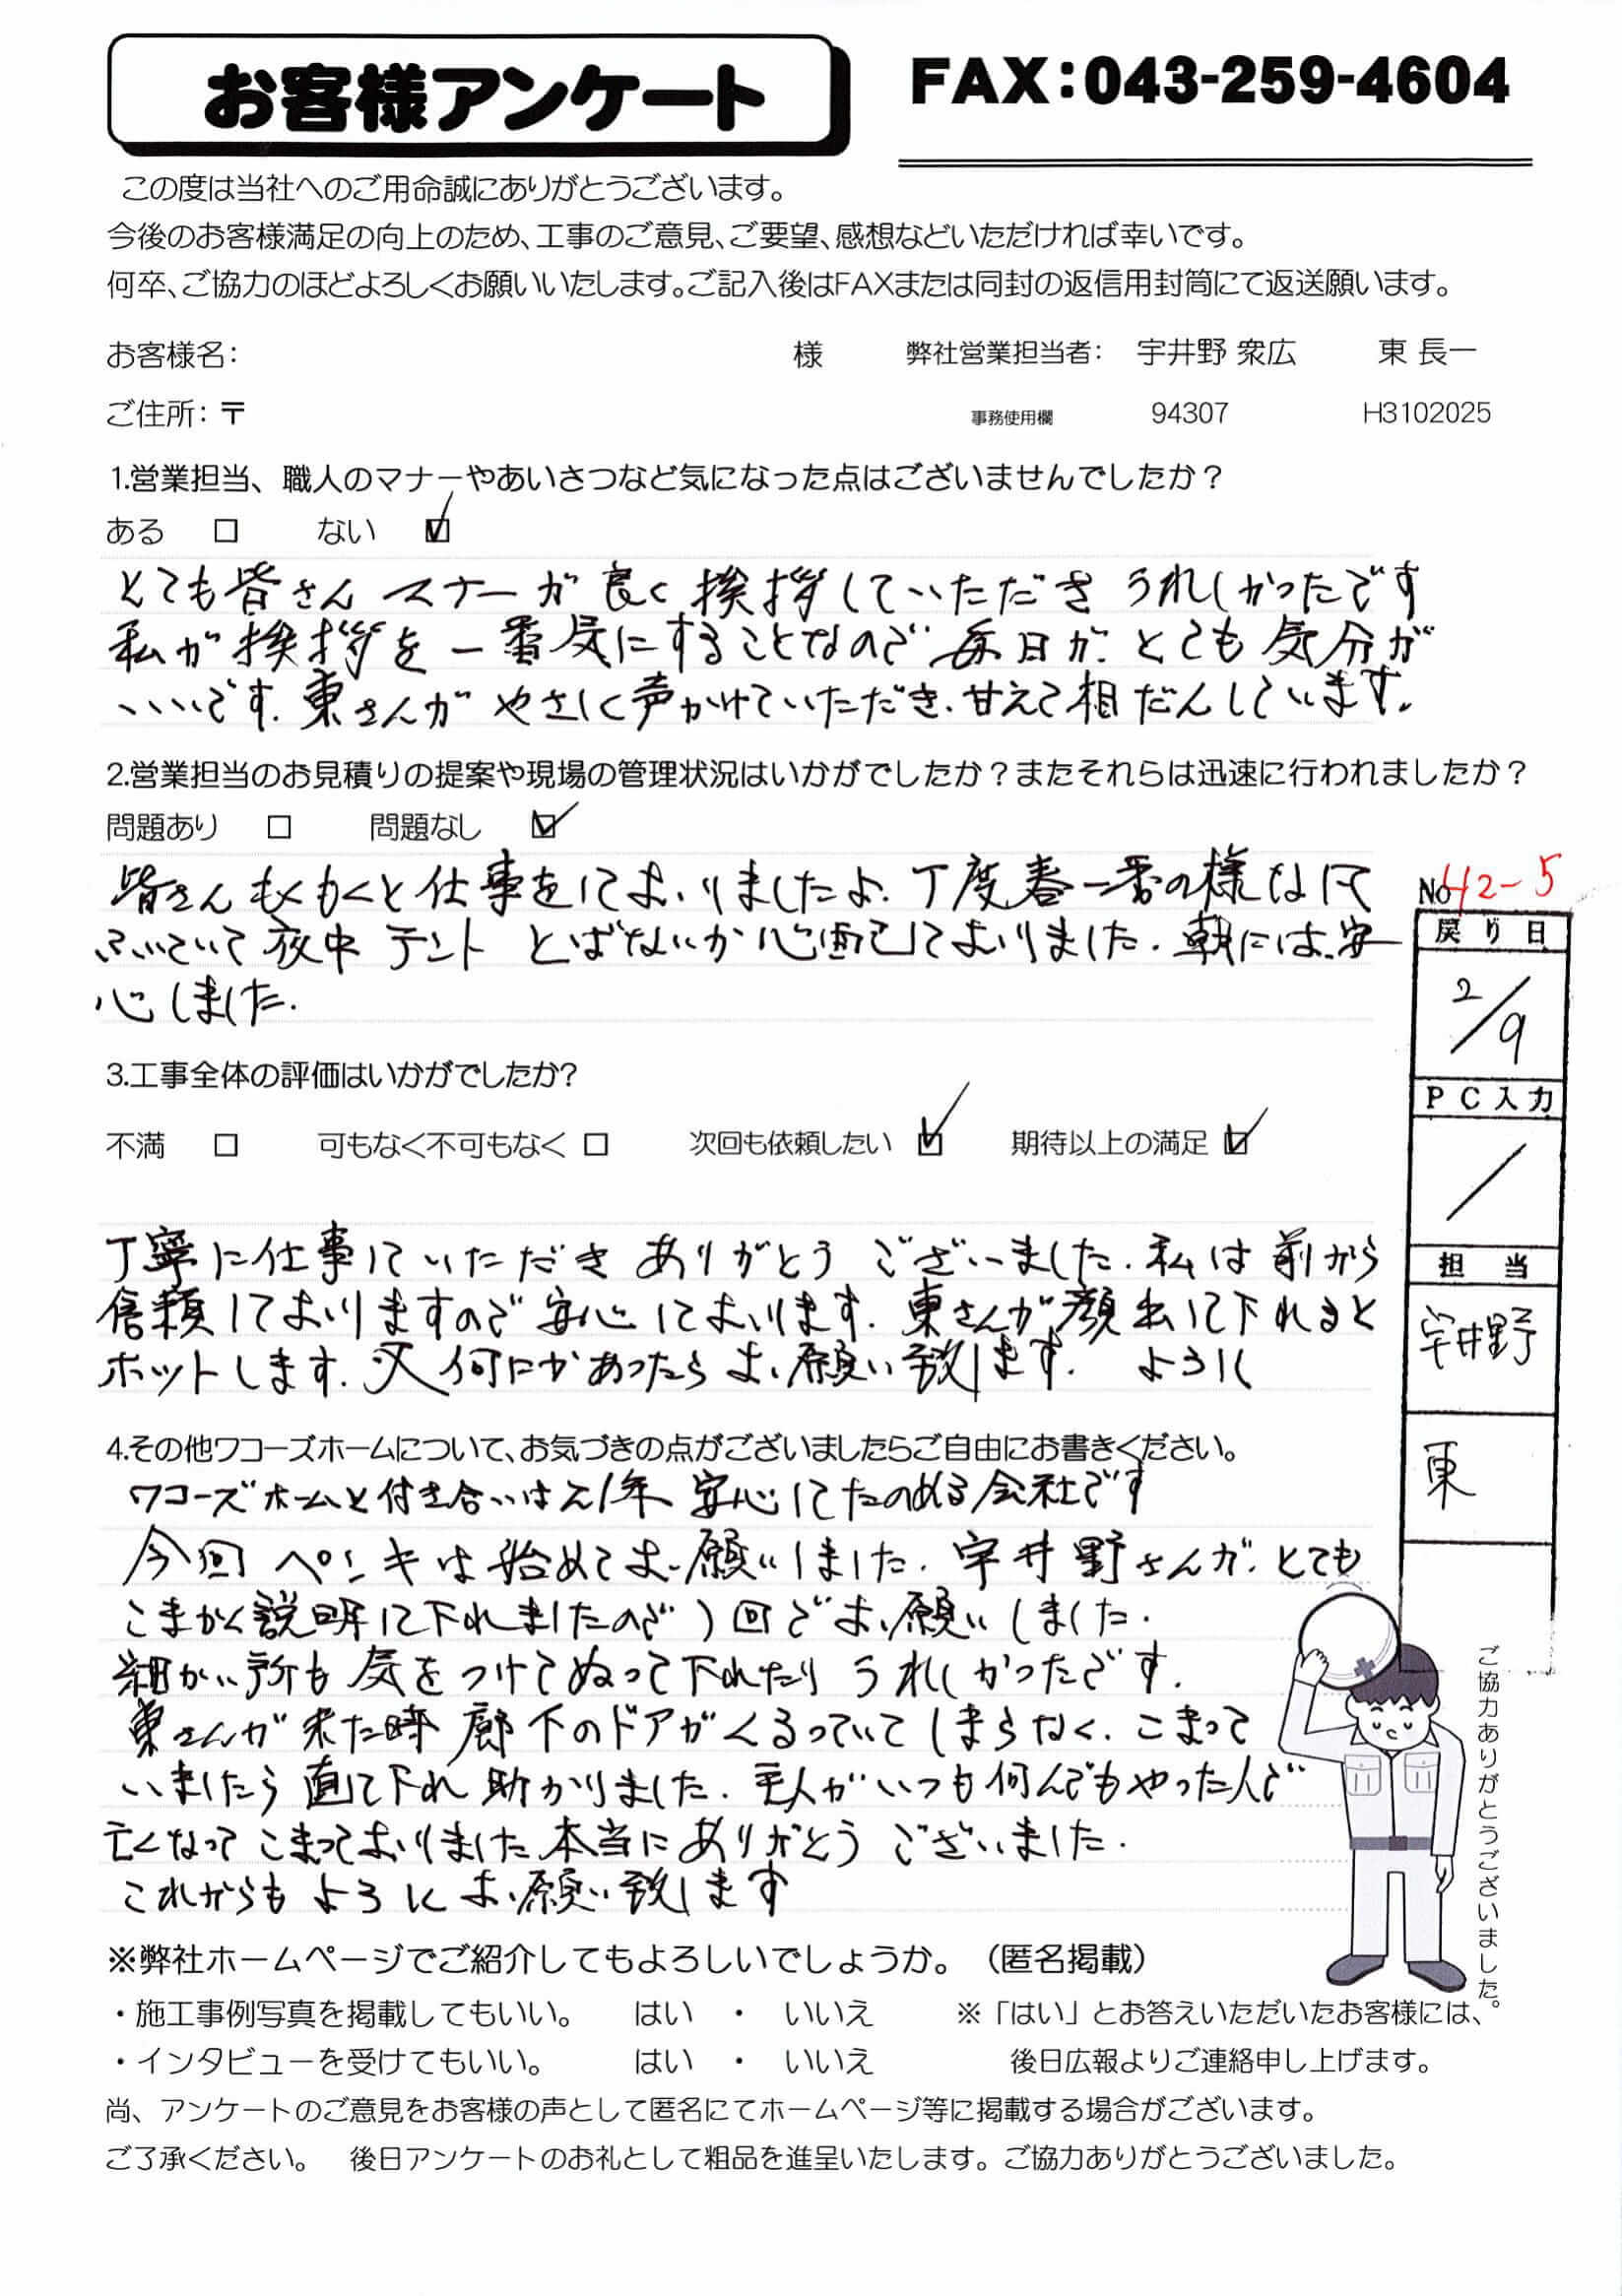 お客様アンケート
FAX:043-259-4604
この度は当社へのご用命誠にありがとうございます。
今後のお客様満足の向上のため、工事のご意見、ご要望、感想などいただければ幸いです。
何卒、ご協力のほどよろしくお願いいたします。ご記入後はFAXまたは同封の返信用封筒にて返送願います。
お客様名: 様 弊社営業担当者: 宇井野 衆広 東 長一
ご住所:〒 事務使用欄 94307 H3102025
1.営業担当、職人のマナーやあいさつなど気になった点はございませんでしたか？
ある □ ない ☑
とても皆さん マナーが良く挨拶していただき うれしかったです
私が挨拶を一番気にすることなので 毎日が、とても気分が
いいです. 東さんが やさしく声かけていただき、甘えて相だんしています。
2.営業担当のお見積りの提案や現場の管理状況はいかがでしたか？またそれらは迅速に行われましたか？
問題あり □ 問題なし ☑
皆さんもくもくと仕事をしておりましたよ. 丁度春一番の様な
ふいていて夜中 テント とばないか心配しておりました. 朝には、安
心しました.
No 42-5
戻り日
2/9
PC入力
/
担当
宇井野
東
3.工事全体の評価はいかがでしたか?
不満 □ 可もなく不可もなく □ 次回も依頼したい ☑ 期待以上の満足 ☑
丁寧に仕事していただき ありがとう ございました. 私は前から
信頼しておりますので安心しております. 東さんが顔出して下れると
ホットします. 又何にかあったらお願い致します. よろしく
4.その他ワコーズホームについて、お気づきの点がございましたらご自由にお書きください。
ワコーズホームと付き合いは21年 安心してたのめる会社です
今回 ペンキは始めてお願いしました. 宇井野さんが、とても
こまかく説明して下れましたので 1回でお願いしました.
細かい所も気をつけてぬって下れたり うれしかったです.
東さんが来た時 廊下のドアがくるっていてしまらなく、こまって
いましたら 直して下れ 助かりました. 主人がいつも何んでもやった人で
亡くなって こまっておりました 本当にありがとう ございました.
これからも よろしくお願い致します
ご協力ありがとうございました。
※弊社ホームページでご紹介してもよろしいでしょうか。（匿名掲載）
・施工事例写真を掲載してもいい。 はい ・ いいえ ※「はい」とお答えいただいたお客様には、
・インタビューを受けてもいい。 はい ・ いいえ 後日広報よりご連絡申し上げます。
尚、アンケートのご意見をお客様の声として匿名にてホームページ等に掲載する場合がございます。
ご了承ください。 後日アンケートのお礼として粗品を進呈いたします。ご協力ありがとうございました。